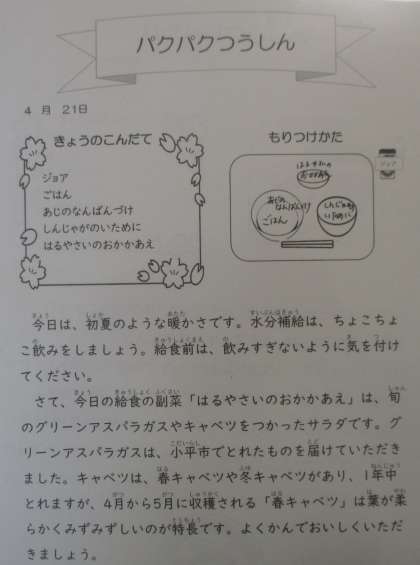 パクパクつうしん
4 月 21日
きょうのこんだて
ジョア
ごはん
あじのなんばんづけ
しんじゃがのいために
はるやさいのおかかあえ
もりつけかた
ジョア
はるやさいの
おかかあえ
あじの
なんばんづけ
ごはん
しんじゃがの
いために
今日は、初夏のような暖かさです。水分補給は、ちょこちょ
こ飲みをしましょう。給食前は、飲みすぎないように気を付け
てください。
さて、今日の給食の副菜「はるやさいのおかかあえ」は、旬
のグリーンアスパラガスやキャベツをつかったサラダです。グ
リーンアスパラガスは、小平市でとれたものを届けていただき
ました。キャベツは、春キャベツや冬キャベツがあり、1年中
とれますが、4月から5月に収穫される「春キャベツ」は葉が柔
らかくみずみずしいのが特長です。よくかんでおいしくいただ
きましょう。